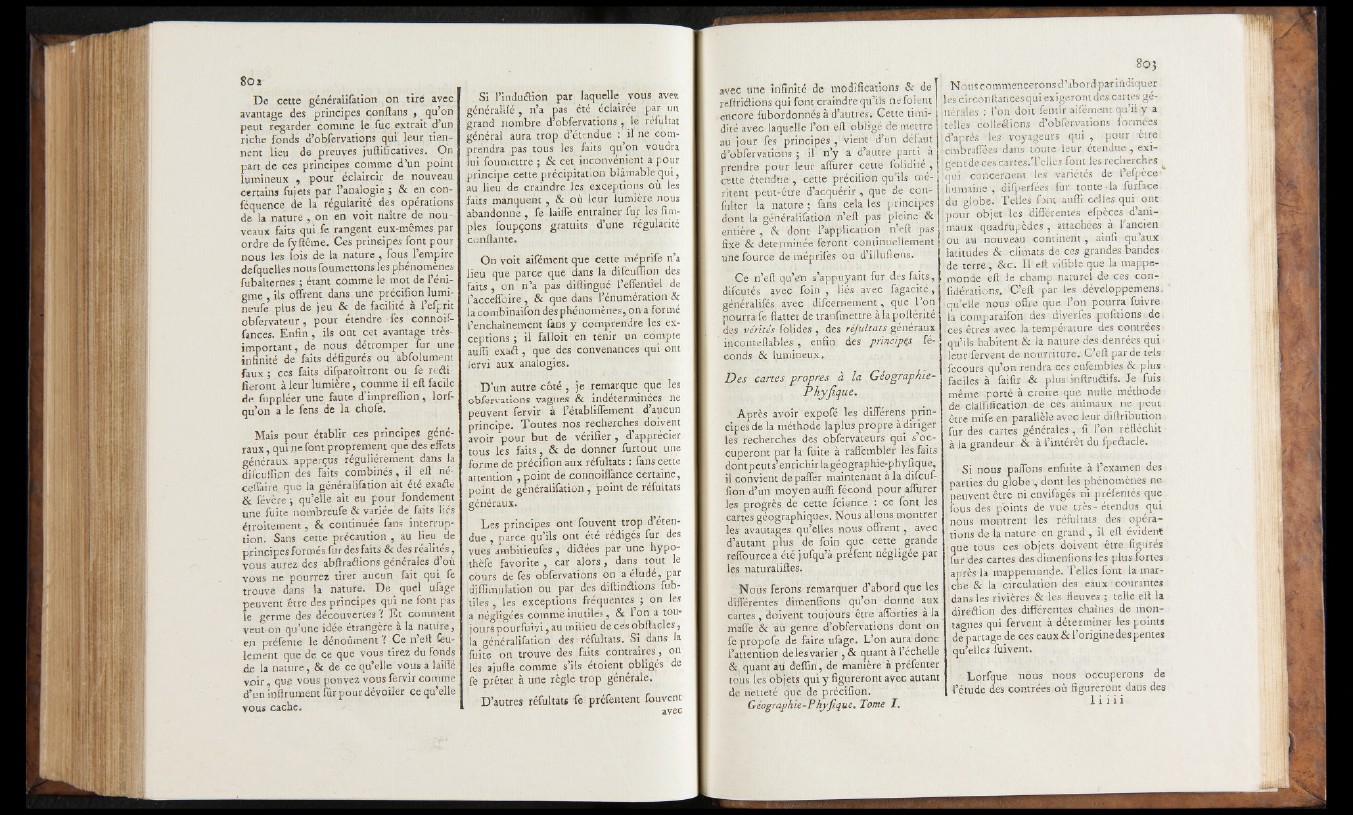 802
De cette généralisation on tire avec
avantage des principes constans , qu'on
peut regarder comme le suc extrait d'un
riche fonds d'observations qui leur tien-
nent lieu de preuves justificatives. On
part de ces principes comme d'un point
lumineux , pour éclaircir de nouveau
certains sujets par l'analogie ; & en con-
séquence de la régularité des opérations
de la nature , on en voit naître de nou-
veaux faits qui se rangent eux-mêmes par
ordre de système. Ces principes sont pour
nous les lois de la nature , sous l'empire
desquelles nous soumettons les phénomènes
subalternes ; étant comme le mot de l'éni-
gme , ils offrent dans une précision lumi-
neuse plus de jeu & de facilité à l'esprit
observateur , pour étendre ses connois-
sances. Enfin , ils ont cet avantage très-
important, de nous détromper sur une
infinité de faits défigurés ou absolument
faux ; ces faits disparoîtront ou se recti-
fieront à leur lumière , comme il est facile
de suppléer une faute d'impression , lors-
qu'on a le sens de la chose.
Mais pour établir ces principes géné-
raux , qui ne sont proprement que des effets
généraux apperçus réguliérement dans la
discussion des faits combinés , il est né-
cessaire que la généralisation ait été exacte
& sévère ; qu'elle ait eu pour fondement
une suite nombreuse & variée de faits liés
étroitement , & continuée sans interrup-
tion. Sans cette précaution , au lieu de
principes formés sur des faits & des réalités ,
vous aurez des abstractions générales d'où
vous ne pourrez tirer aucun fait qui se
trouve dans la nature. De quel usage
peuvent être des principes qui ne sont pas
le germe des découvertes ? Et comment
veut-on qu'une idée étrangère à la nature,
en présente le dénoûment ? Ce n'est seu-
lement que de ce que vous tirez du fonds
de la nature , & de ce qu'elle vous a laissé
voir , que vous pouvez vous servir comme
d'un instrument sûr pour dévoiler ce qu'elle
vous cache.
Si l'induction par laquelle vous avez
généralisé , n'a pas été éclairée par un
grand nombre d'observations , le résultat
général aura trop d'étendue : il ne com-
prendra pas tous les faits qu'on voudra
lui soumettre ; & cet inconvénient a pour
principe cette précipitation blâmable qui ,
au lieu de craindre les exceptions où les
faits manquent , & où leur lumière nous
abandonne , se laisse entraîner sur les sim-
ples soupçons gratuits d'une régularité
constante.
On voit aisément que cette méprise n'a
lieu que parce que dans la discussion des
faits , on n'a pas distingué l'essentiel de
l'accessoire , & que dans l'énumération &
la combinaison des phénomènes, on a formé
l'enchaînement sans y comprendre les ex-
ceptions ; il falloit en tenir un compte
aussi exact , que des convenances qui ont
servi aux analogies.
D'un autre côté , je remarque que les
observations vagues & indéterminées ne
peuvent servir à l'établissement d'aucun
principe. Toutes nos recherches doivent
avoir pour but de vérifier , d'apprécier
tous les faits , & de donner surtout une
forme de précision aux résultats : sans cette
attention , point de connoissance certaine,
point de généralisation , point de résultats
généraux.
Les principes ont souvent trop d'éten-
due , parce qu'ils ont été rédigés sur des
vues ambitieuses , dictées par une hypo-
thèse favorite , car alors , dans tout le
cours de ses observations on a éludé, par
dissimulation ou par des distinctions sub-
tiles , les exceptions fréquentes ; on les
a négligées comme inutiles, & l'on a tou-
jours poursuivi, au milieu de ces obstacles,
la généralisation des résultats. Si dans la
suite on trouve des faits contraires , on
les ajuste comme s'ils étoient obligés de
se prêter à une règle trop générale.
D'autres résultats se présentent souvent
avec
803
avec une infinité de modifications & de
restrictions qui font craindre qu'ils ne soient
encore subordonnés à d'autres. Cette timi-
dité avec laquelle l'on est obligé de mettre
au jour ses principes , vient d'un défaut
d'observations ; il n'y a d'autre parti à
prendre pour leur assurer cette solidité ,
cette étendue , cette précision qu'ils mé-
ritent peut-être d'acquérir , que de con-
sulter la nature ; sans cela les principes
dont la généralisation n'est pas pleine &
entière , & dont l'application n'est pas
fixe & déterminée seront continuellement
une source de méprises ou d'illusions.
Ce n'est qu'en s'appuyant sur des faits,
discutés avec soin , liés avec sagacité ,
généralisés avec discernement , que l'on
pourra se flatter de transmettre à la postérité
des vérités solides , des résultats généraux
incontestables , enfin des principes fé-
conds & lumineux.
Des cartes propres à la Géographie-
Physique.
Après avoir exposé les différens prin-
cipes de la méthode la plus propre à diriger
les recherches des observateurs qui s'oc-
cuperont par la suite à rassembler les faits
dont peut s'enrichir la géographie-physique,
il convient de passer maintenant à la discus-
sion d'un moyen aussi fécond pour assurer
les progrès de cette science : ce sont les
cartes géographiques. Nous allons montrer
les avantages qu'elles nous offrent , avec
d'autant plus de soin que cette grande
ressource a été jusqu'à présent négligée par
les naturalistes.
Nous ferons remarquer d'abord que les
différentes dimensions qu'on donne aux
cartes , doivent toujours être assorties à la
masse & au genre d'observations dont on
se propose de faire usage. L'on aura donc
l'attention de les varier , & quant à l'échelle
& quant au dessin, de manière à présenter
tous les objets qui y figureront avec autant
de netteté que de précision.
Géographie-Physique. Tome I.
Nous commencerons d'abord par indiquer
les circonstances qui exigeront des cartes gé-
nérales : l'on doit sentir aisément qu'il y a
telles collections d'observations formées
d'après les voyageurs qui , pour être
embrassées dans toute leur étendue , exi-
gent de ces cartes. Telles sont les recherches
qui concernent les variétés de l'espèce
humaine , dispersées sur toute la surface
du globe. Telles sont aussi celles qui ont
pour objet les différentes espèces d'ani-
maux quadrupèdes , attachées à l'ancien
ou au nouveau continent , ainsi qu'aux
latitudes & climats de ces grandes bandes
de terre , &c. Il est visible que la mappe-
monde est le champ naturel de ces con-
sidérations. C'est par les développemens
qu'elle nous offre que l'on pourra suivre
la comparaison des diverses positions de
ces êtres avec la température des contrées
qu'ils habitent & la nature des denrées qui
leur servent de nourriture. C'est par de tels
secours qu'on rendra ces ensembles & plus
faciles à saisir & plus instructifs. Je suis
même porté à croire que nulle méthode
de classification de ces animaux ne peut
être mise en parallèle avec leur distribution
sur des cartes générales , si l'on réfléchit
à la grandeur & à l'intérêt du spectacle.
Si nous passons ensuite à l'examen des
parties du globe , dont les phénomènes ne
peuvent être ni envisagés ni présentés que
sous des points de vue très-étendus qui
nous montrent les résultats des opéra-
tions de la nature en grand , il est évident
que tous ces objets doivent être figurés
sur des cartes des dimensions les plus fortes
après la mappemonde. Telles sont la mar-
che & la circulation des eaux courantes
dans les rivières & les fleuves ; telle est la
direction des différentes chaînes de mon-
tagnes qui servent à déterminer les points
de partage de ces eaux & l'origine des pentes
qu'elles suivent.
Lorsque nous nous occuperons de
l'étude des contrées où figureront dans des
Iiiii